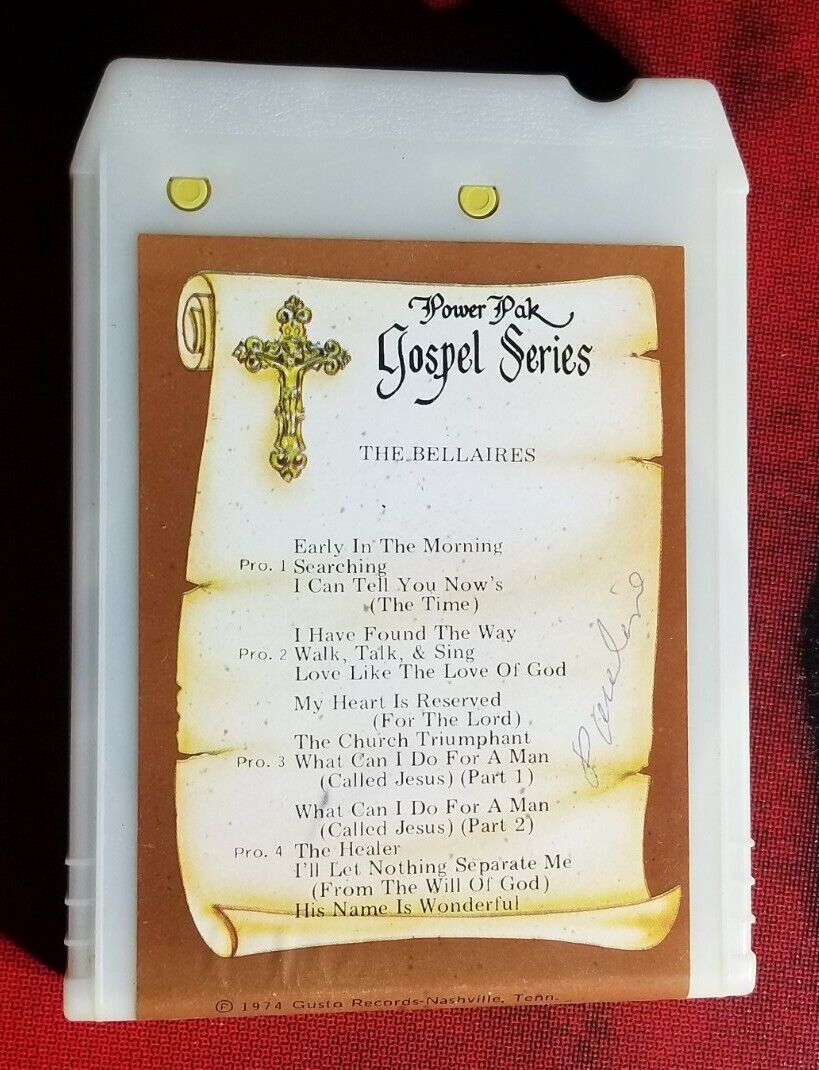 Power Pak
Gospel Series
THE BELLAIRES
Early In The Morning
Pro. 1 Searching
I Can Tell You Now's
(The Time)
I Have Found The Way
Pro. 2 Walk, Talk, & Sing
Love Like The Love Of God
My Heart Is Reserved
(For The Lord)
The Church Triumphant
Pro. 3 What Can I Do For A Man
(Called Jesus) (Part 1)
What Can I Do For A Man
(Called Jesus) (Part 2)
Pro. 4 The Healer
I'll Let Nothing Separate Me
(From The Will Of God)
His Name Is Wonderful
Ⓟ 1974 Gusto Records-Nashville, Tenn.